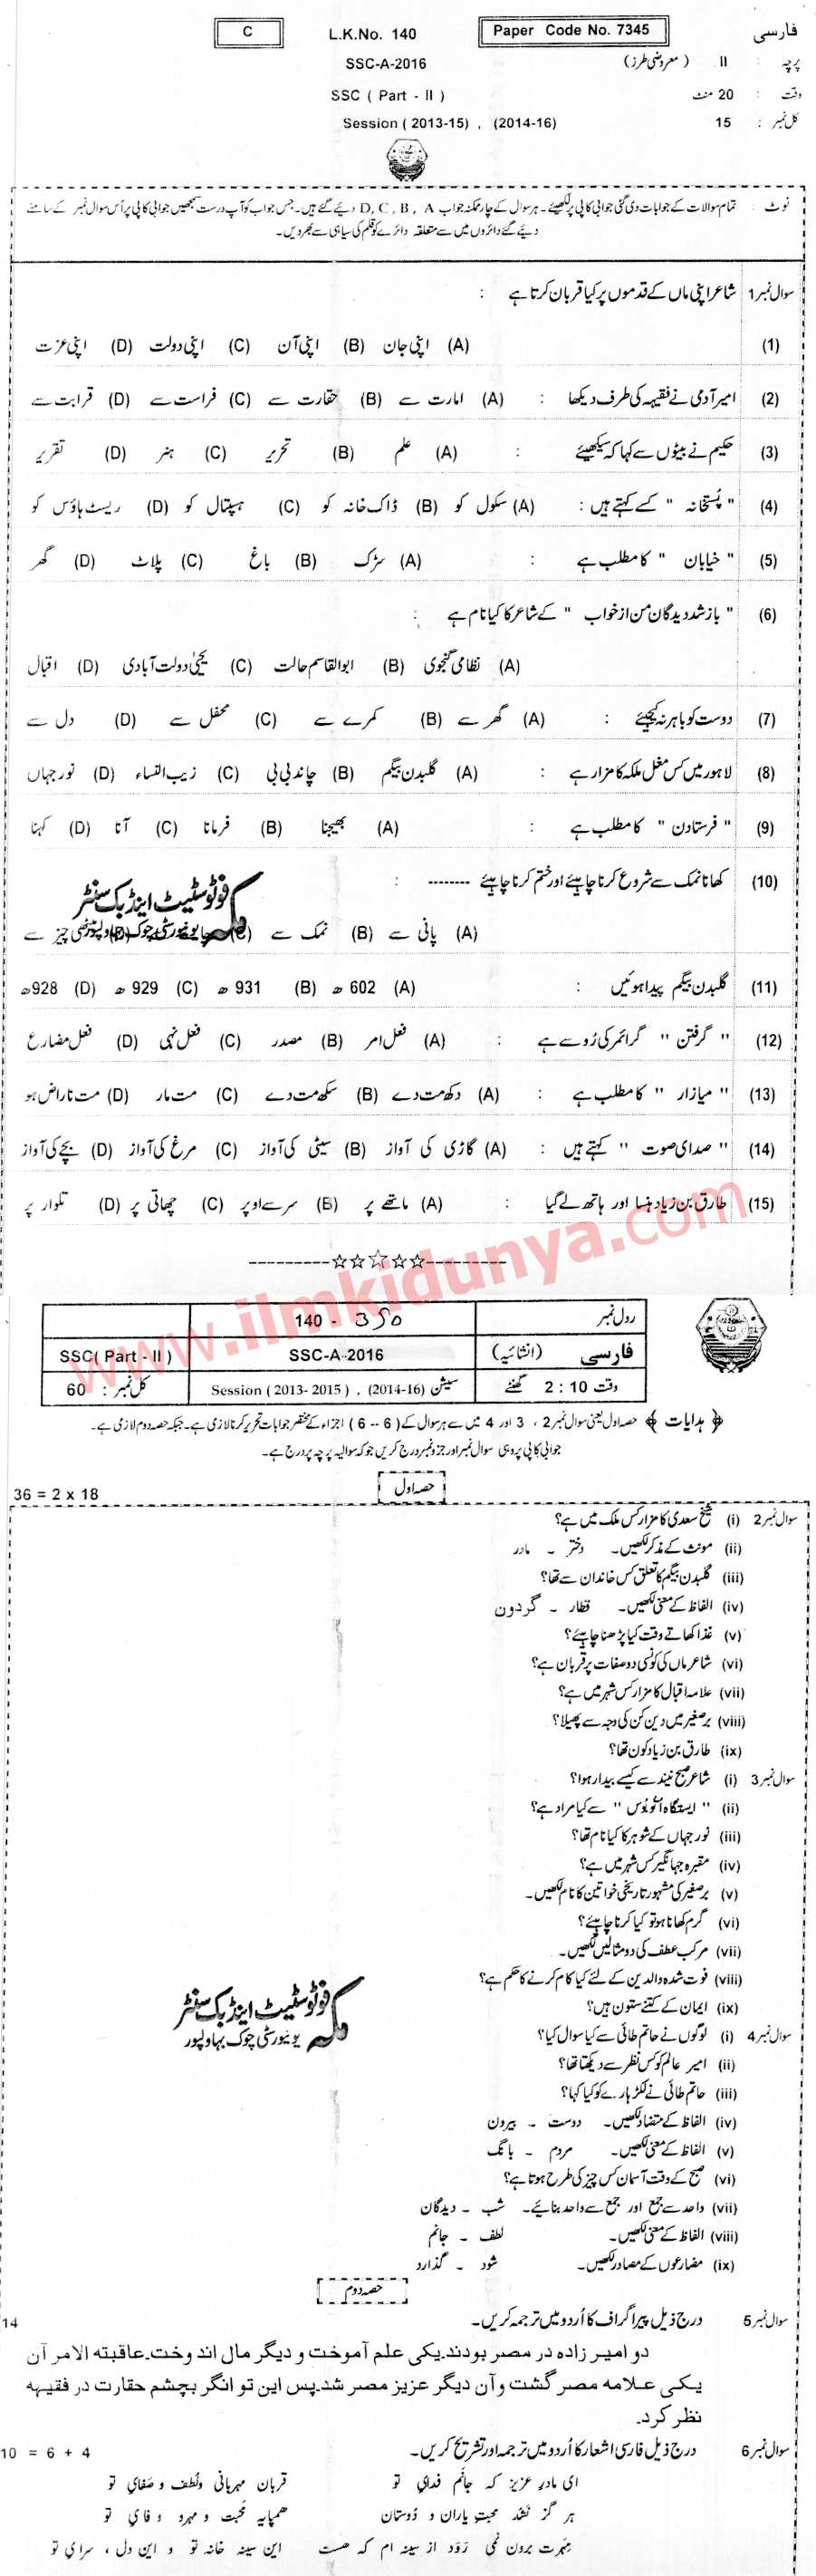 C
L.K.No. 140
Paper Code No. 7345
فارسی
SSC-A-2016
پرچہ : II (معروضی طرز)
SSC ( Part - II )
وقت : 20 منٹ
Session ( 2013-15) , (2014-16)
کل نمبر : 15
نوٹ : تمام سوالات کے جوابات دی گئی جوابی کاپی پر لکھیئے۔ ہر سوال کے چار ممکنہ جواب D, C, B, A دیئے گئے ہیں۔ جس جواب کو آپ درست سمجھیں جوابی کاپی پر اُس سوال نمبر کے سامنے
دیئے گئے دائروں میں سے متعلقہ دائرے کو قلم کی سیاہی سے بھر دیں۔
سوال نمبر 1 شاعر اپنی ماں کے قدموں پر کیا قربان کرتا ہے :
(1) (A) اپنی جان (B) اپنی آن (C) اپنی دولت (D) اپنی عزت
(2) امیر آدمی نے فقیہہ کی طرف دیکھا : (A) امارت سے (B) حقارت سے (C) فراست سے (D) قرابت سے
(3) حکیم نے بیٹوں سے کہا کہ سیکھیئے : (A) علم (B) تحریر (C) ہنر (D) تقریر
(4) " پُستخانہ " کسے کہتے ہیں : (A) سکول کو (B) ڈاک خانہ کو (C) ہسپتال کو (D) ریسٹ ہاؤس کو
(5) " خیابان " کا مطلب ہے : (A) سڑک (B) باغ (C) پلاٹ (D) گھر
(6) " باز شد دیدگان من از خواب " کے شاعر کا کیا نام ہے :
(A) نظامی گنجوی (B) ابوالقاسم حالت (C) یحییٰ دولت آبادی (D) اقبال
(7) دوست کو باہر نہ کیجیئے : (A) گھر سے (B) کمرے سے (C) محفل سے (D) دل سے
(8) لاہور میں کس مغل ملکہ کا مزار ہے : (A) گلبدن بیگم (B) چاند بی بی (C) زیب النساء (D) نور جہاں
(9) " فرستادن " کا مطلب ہے : (A) بھیجنا (B) فرمانا (C) آنا (D) کہنا
(10) کھانا نمک سے شروع کرنا چاہیئے اور ختم کرنا چاہیئے -------- :
فوٹو سٹیٹ اینڈ بک سنٹر
یونیورسٹی چوک بہاولپور
(A) پانی سے (B) نمک سے (C) (D) میٹھی چیز سے
(11) گلبدن بیگم پیدا ہوئیں : (A) 602 ھ (B) 931 ھ (C) 929 ھ (D) 928ھ
(12) " گرفتن " گرائمر کی رُو سے ہے : (A) فعل امر (B) مصدر (C) فعل نہی (D) فعل مضارع
(13) " میازار " کا مطلب ہے : (A) دکھ مت دے (B) سکھ مت دے (C) مت مار (D) مت ناراض ہو
(14) " صدای صوت " کہتے ہیں : (A) گاڑی کی آواز (B) سیٹی کی آواز (C) مرغ کی آواز (D) بچے کی آواز
(15) طارق بن زیاد ہنسا اور ہاتھ لے گیا : (A) ماتھے پر (B) سر سے اوپر (C) چھاتی پر (D) تلوار پر
---------☆☆☆☆☆---------
www.ilmkidunya.com
رول نمبر
140 - 350
فارسی (انشائیہ)
SSC-A-2016
SSC( Part - II )
وقت 10 : 2 گھنٹے
سیشن Session ( 2013- 2015) , (2014-16)
کل نمبر : 60
﴿ ہدایات ﴾ حصہ اول یعنی سوال نمبر 2 ، 3 اور 4 میں سے ہر سوال کے ( 6 -- 6 ) اجزاء کے مختصر جوابات تحریر کرنا لازمی ہے۔ جبکہ حصہ دوم لازمی ہے۔
جوابی کاپی پر وہی سوال نمبر اور جزو نمبر درج کریں جو کہ سوالیہ پرچہ پر درج ہے۔
حصہ اول
36 = 2 x 18
سوال نمبر 2 (i) شیخ سعدی کا مزار کس ملک میں ہے؟
(ii) مونث کے مذکر لکھیں۔ دختر ۔ مادر
(iii) گلبدن بیگم کا تعلق کس خاندان سے تھا؟
(iv) الفاظ کے معنی لکھیں۔ قطار ۔ گردون
(v) غذا کھاتے وقت کیا پڑھنا چاہیئے؟
(vi) شاعر ماں کی کونسی دو صفات پر قربان ہے؟
(vii) علامہ اقبال کا مزار کس شہر میں ہے؟
(viii) برصغیر میں دین کن کی وجہ سے پھیلا؟
(ix) طارق بن زیاد کون تھا؟
سوال نمبر 3 (i) شاعر صبح نیند سے کیسے بیدار ہوا؟
(ii) " ایستگاہ اتوبوس " سے کیا مراد ہے؟
(iii) نور جہاں کے شوہر کا کیا نام تھا؟
(iv) مقبرہ جہانگیر کس شہر میں ہے؟
(v) برصغیر کی مشہور تاریخی خواتین کا نام لکھیں۔
(vi) گرم کھانا ہو تو کیا کرنا چاہیئے؟
(vii) مرکب عطف کی دو مثالیں لکھیں۔
(viii) فوت شدہ والدین کے لئے کیا کام کرنے کا حکم ہے؟
(ix) ایمان کے کتنے ستون ہیں؟
فوٹو سٹیٹ اینڈ بک سنٹر
یونیورسٹی چوک بہاولپور
سوال نمبر 4 (i) لوگوں نے حاتم طائی سے کیا سوال کیا؟
(ii) امیر عالم کو کس نظر سے دیکھتا تھا؟
(iii) حاتم طائی نے لکڑہارے کو کیا کہا؟
(iv) الفاظ کے متضاد لکھیں۔ دوست ۔ بیرون
(v) الفاظ کے معنی لکھیں۔ مردم ۔ بانگ
(vi) صبح کے وقت آسمان کس چیز کی طرح ہوتا ہے؟
(vii) واحد سے جمع اور جمع سے واحد بنائیے۔ شب ۔ دیدگان
(viii) الفاظ کے معنی لکھیں۔ لطف ۔ جانم
(ix) مضارعوں کے مصادر لکھیں۔ شود ۔ گذارد
حصہ دوم
سوال نمبر 5 درج ذیل پیراگراف کا اُردو میں ترجمہ کریں۔ 14
دو امیر زادہ در مصر بودند۔یکی علم آموخت و دیگر مال اندوخت۔عاقبتہ الامر آن
یکی علامہ مصر گشت و آن دیگر عزیز مصر شد۔پس این توانگر بچشم حقارت در فقیہہ
نظر کرد۔
سوال نمبر 6 درج ذیل فارسی اشعار کا اُردو میں ترجمہ اور تشریح کریں۔ 10 = 6 + 4
ای مادرِ عزیز کہ جانَم فدایِ تو قربان مہربانی و لُطف و صَفایِ تو
ہر گز نَشُد محبتِ یاران و دُوستان ہمپایہ مَحبّت و مِہر و وفایِ تو
مِہرت برون نمی رَوَد از سینہ ام کہ ھست این سینہ خانہ تو و این دل ، سرایِ تو